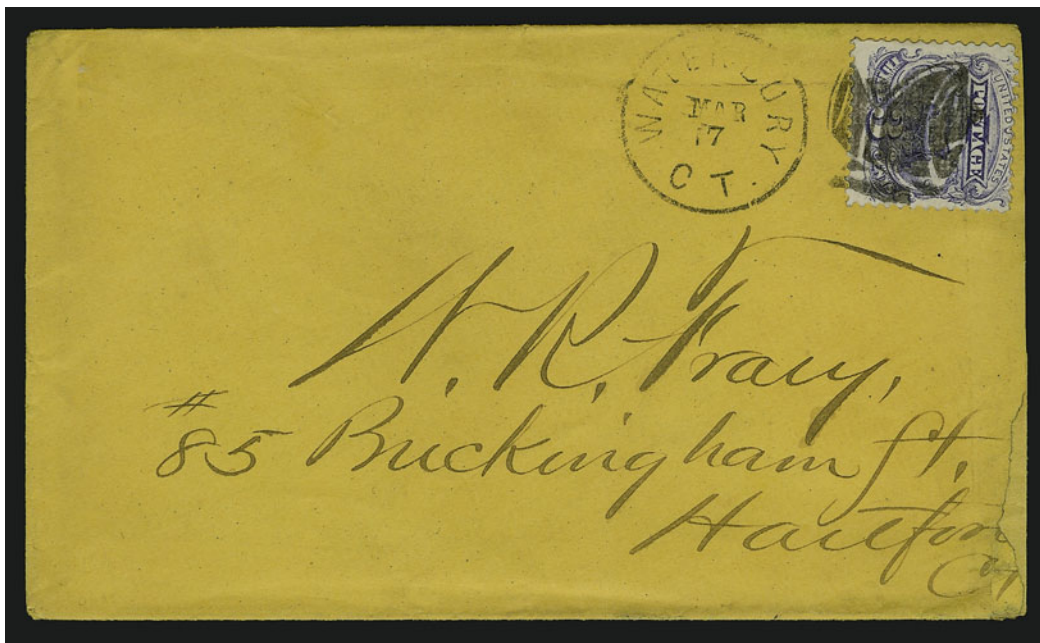 WATERBURY
MAR
17
CT.
UNITED STATES
POSTAGE
#
85 Buckingham St.
Hartford
Ct